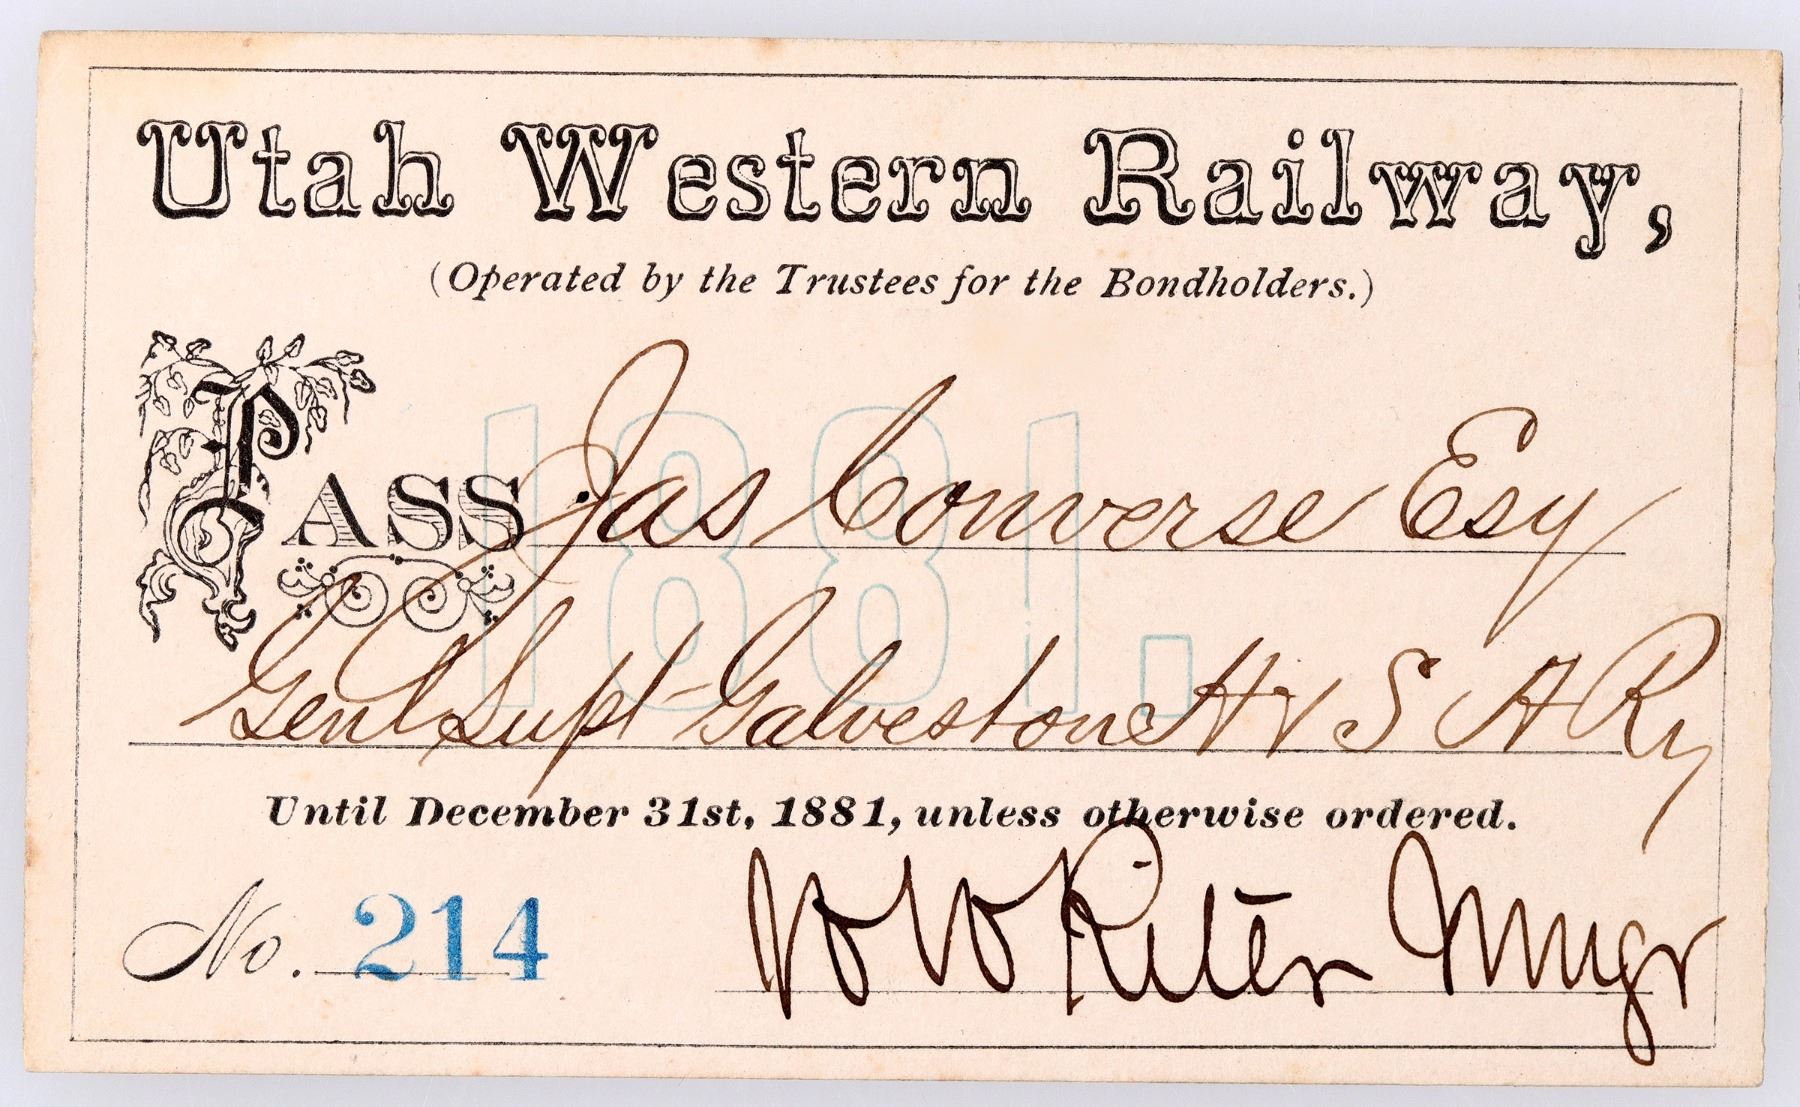 Utah Western Railway,
(Operated by the Trustees for the Bondholders.)
1881.
Pass Jas Converse Esq
Genl Supt Galveston H & S A Ry
Until December 31st, 1881, unless otherwise ordered.
No. 214 W W Riter Mngr